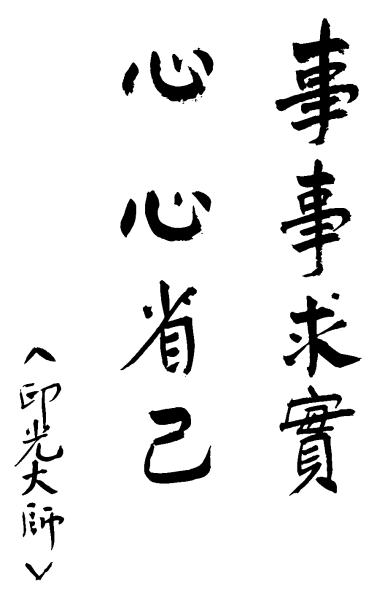 事事求實
心心省己
〈印光大師〉